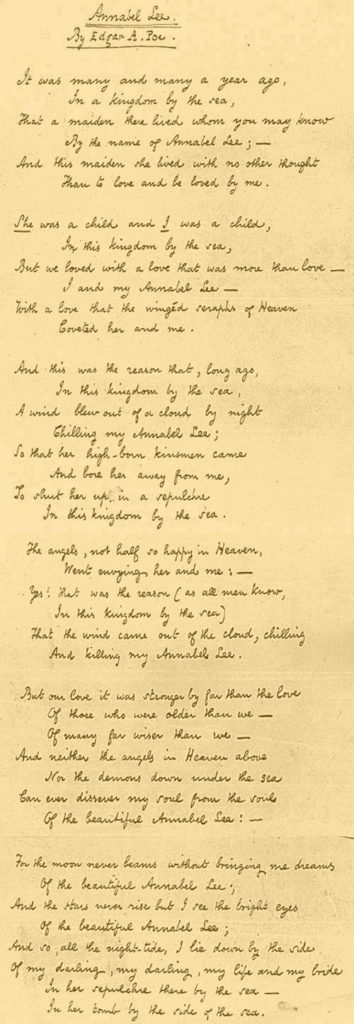 Annabel Lee.
By Edgar A. Poe.
It was many and many a year ago,
In a kingdom by the sea,
That a maiden there lived whom you may know
By the name of Annabel Lee; —
And this maiden she lived with no other thought
Than to love and be loved by me.
She was a child and I was a child,
In this kingdom by the sea,
But we loved with a love that was more than love —
I and my Annabel Lee —
With a love that the wingéd seraphs of Heaven
Coveted her and me.
And this was the reason that, long ago,
In this kingdom by the sea,
A wind blew out of a cloud by night
Chilling my Annabel Lee;
So that her high-born kinsmen came
And bore her away from me,
To shut her up, in a sepulchre
In this kingdom by the sea.
The angels, not half so happy in Heaven,
Went envying her and me: —
Yes! that was the reason (as all men know,
In this kingdom by the sea)
That the wind came out of the cloud, chilling
And killing my Annabel Lee.
But our love it was stronger by far than the love
Of those who were older than we —
Of many far wiser than we —
And neither the angels in Heaven above
Nor the demons down under the sea
Can ever dissever my soul from the soul
Of the beautiful Annabel Lee: —
For the moon never beams without bringing me dreams
Of the beautiful Annabel Lee;
And the stars never rise but I see the bright eyes
Of the beautiful Annabel Lee;
And so, all the night-tide, I lie down by the side
Of my darling, my darling, my life and my bride
In her sepulchre there by the sea —
In her tomb by the side of the sea.